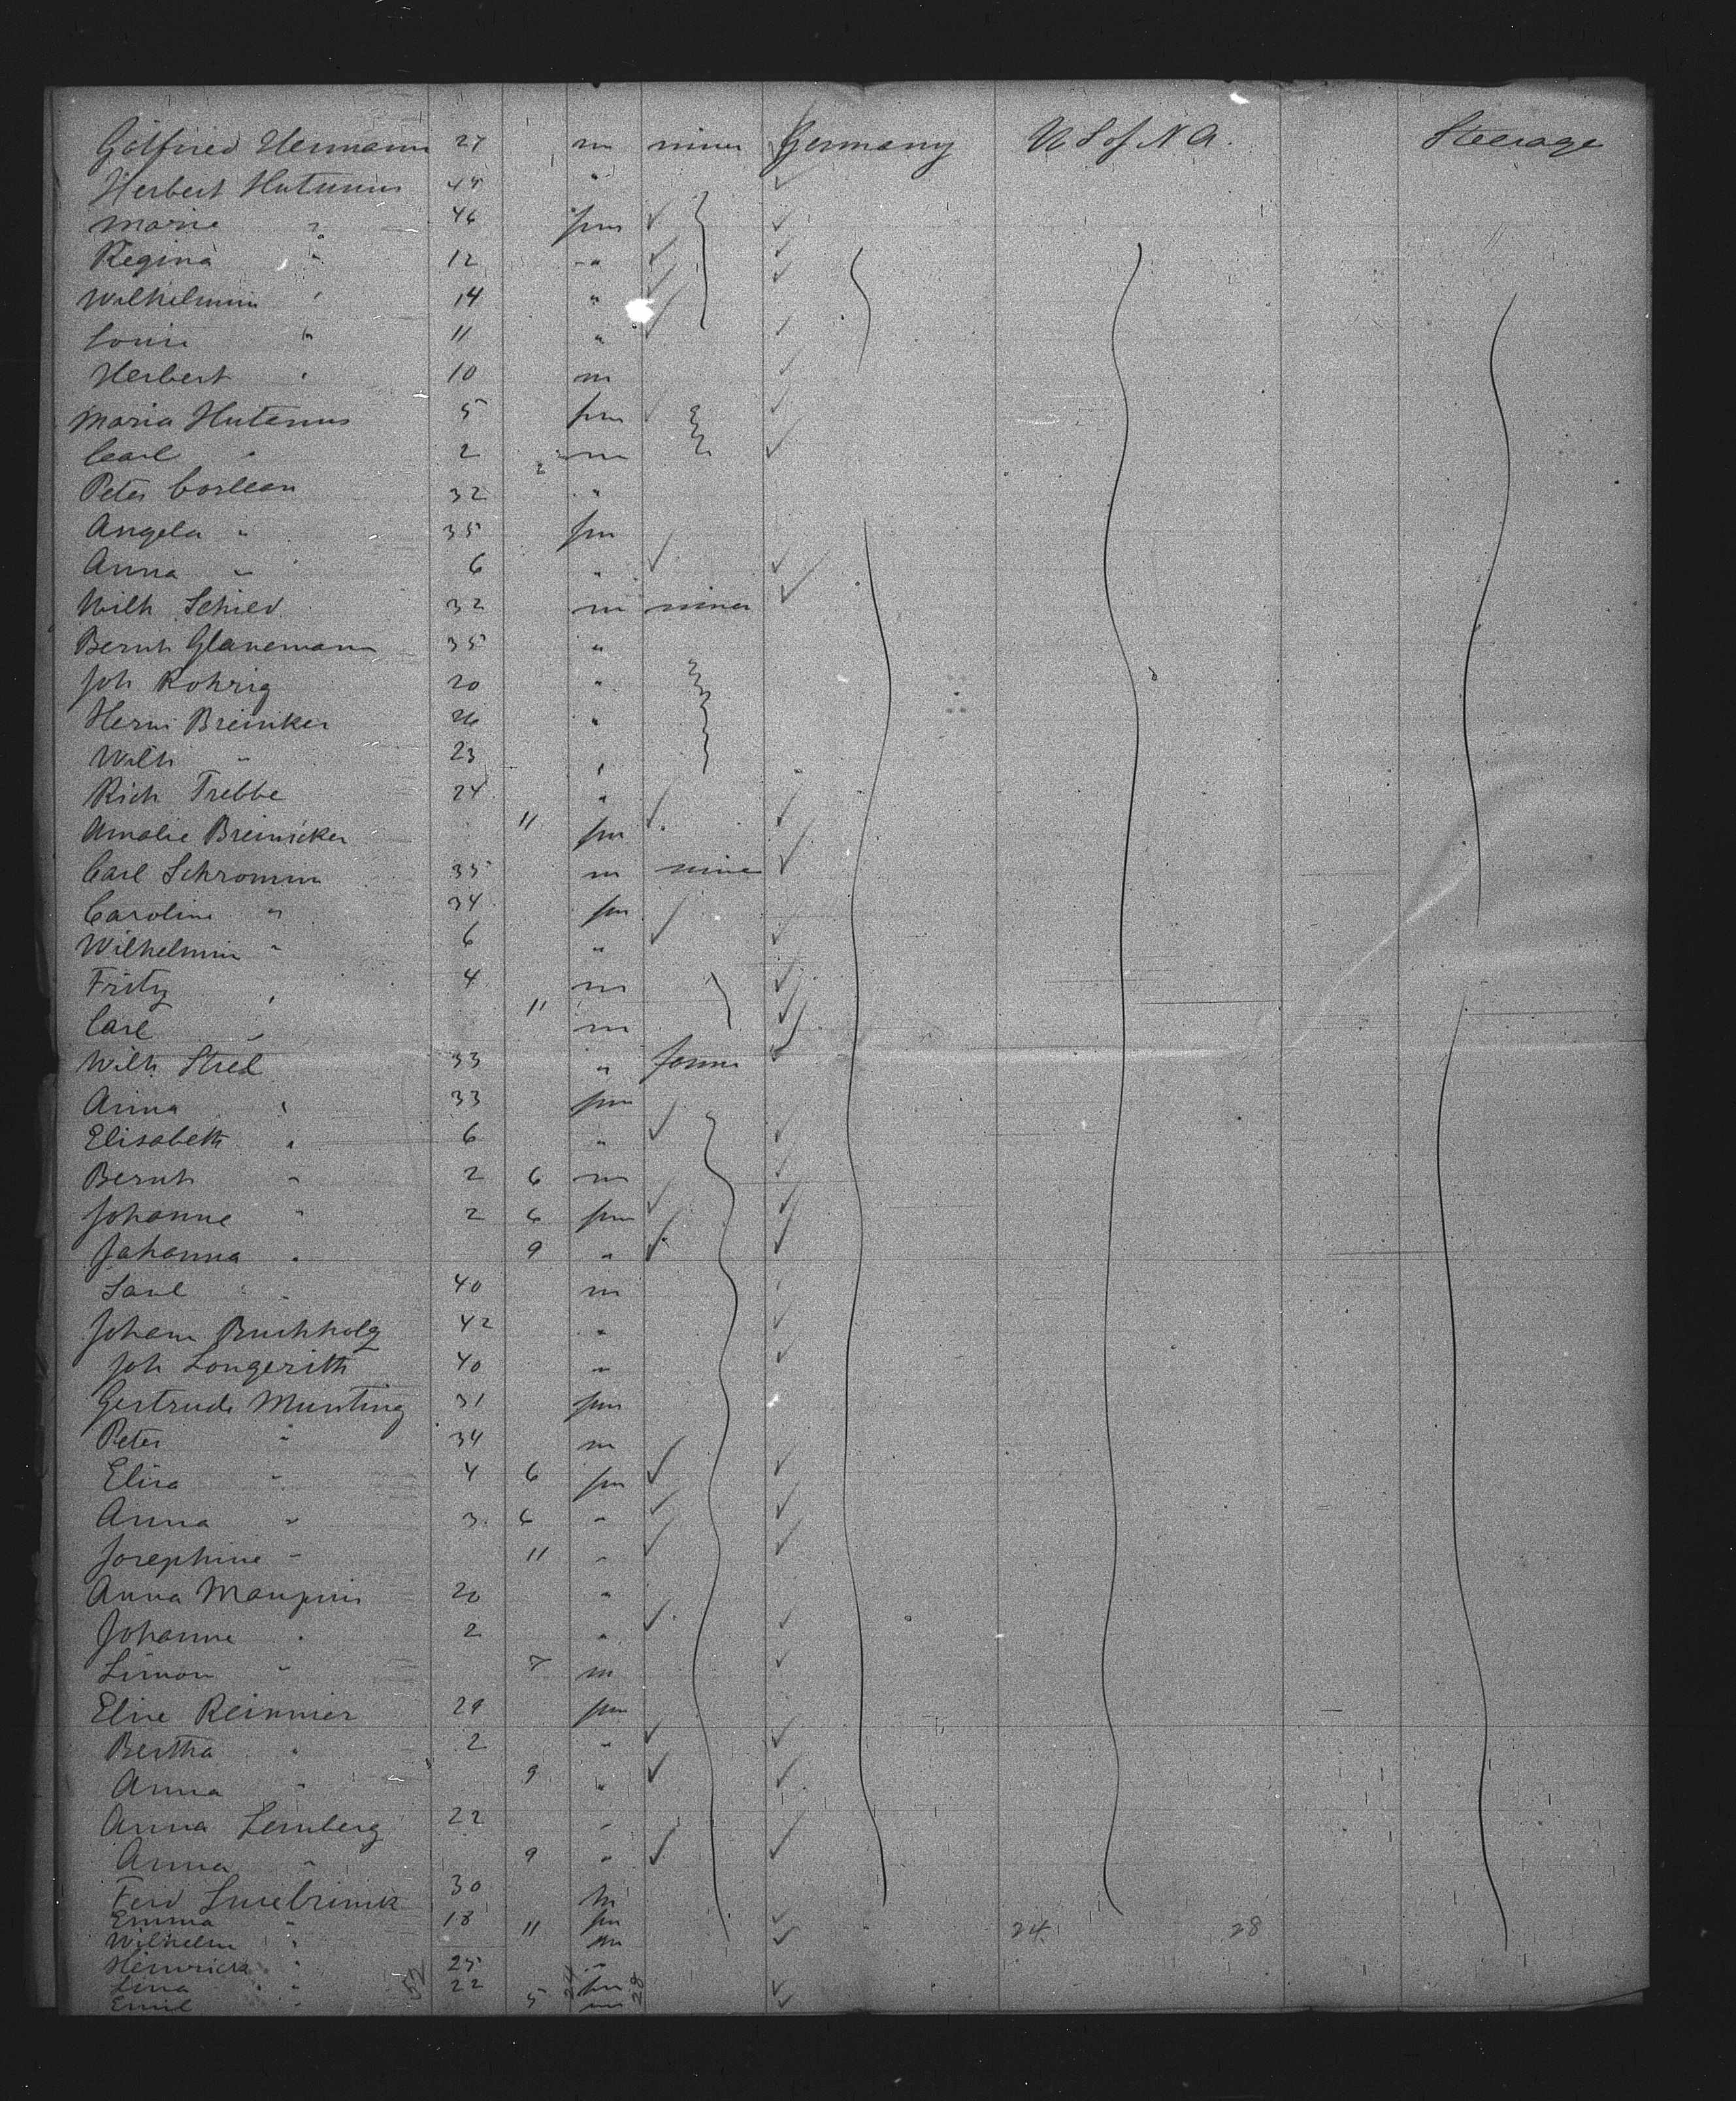 Gottfried Hermann 27 m miner Germany U S of N A. Steerage
Herbert Hutmus 45 "
Marie " 46 fm
Regina " 12 "
Wilhelmin " 14 "
Louis " 11 "
Herbert " 10 m
Maria Hutmus 5 fm
Carl " 2 m
Peter Corlean 32 "
Angela " 35 fm
Anna " 6 "
Wilh Schied 32 m miner
Bernh Glanemann 35 "
Joh Rohrig 20 "
Herm Breinker 26 "
Wilh " 23 "
Rich Trebbe 24 "
Amalie Breinicker 11 fm
Carl Schromm 35 m mine
Caroline " 34 fm
Wilhelmin " 6 "
Fritz " 4 m
Carl " 11 m
Wilh Stred 33 " farmer
Anna " 33 fm
Elisabeth " 6 "
Bernh " 2 6 m
Johanne " 2 6 fm
Johanna " 9 "
Saul " 40 m
Johann Buchholz 42 "
Joh Longerith 40 "
Gertrude Munting 31 fm
Peter " 34 m
Elisa " 4 6 fm
Anna " 3 6 "
Josephine " 11 "
Anna Maupins 20 "
Johanne " 2 "
Simon " 7 m
Elise Reimmer 29 fm
Bertha " 2 "
Anna " 9 "
Anna Lemberg 22 "
Anna " 9 "
Ferd 30 m
Emma " 18 fm
Wilhelm " 11 m 24 28
Heinrich " 25 "
Lina " 22 fm
Emil " 5 m
52 24 28